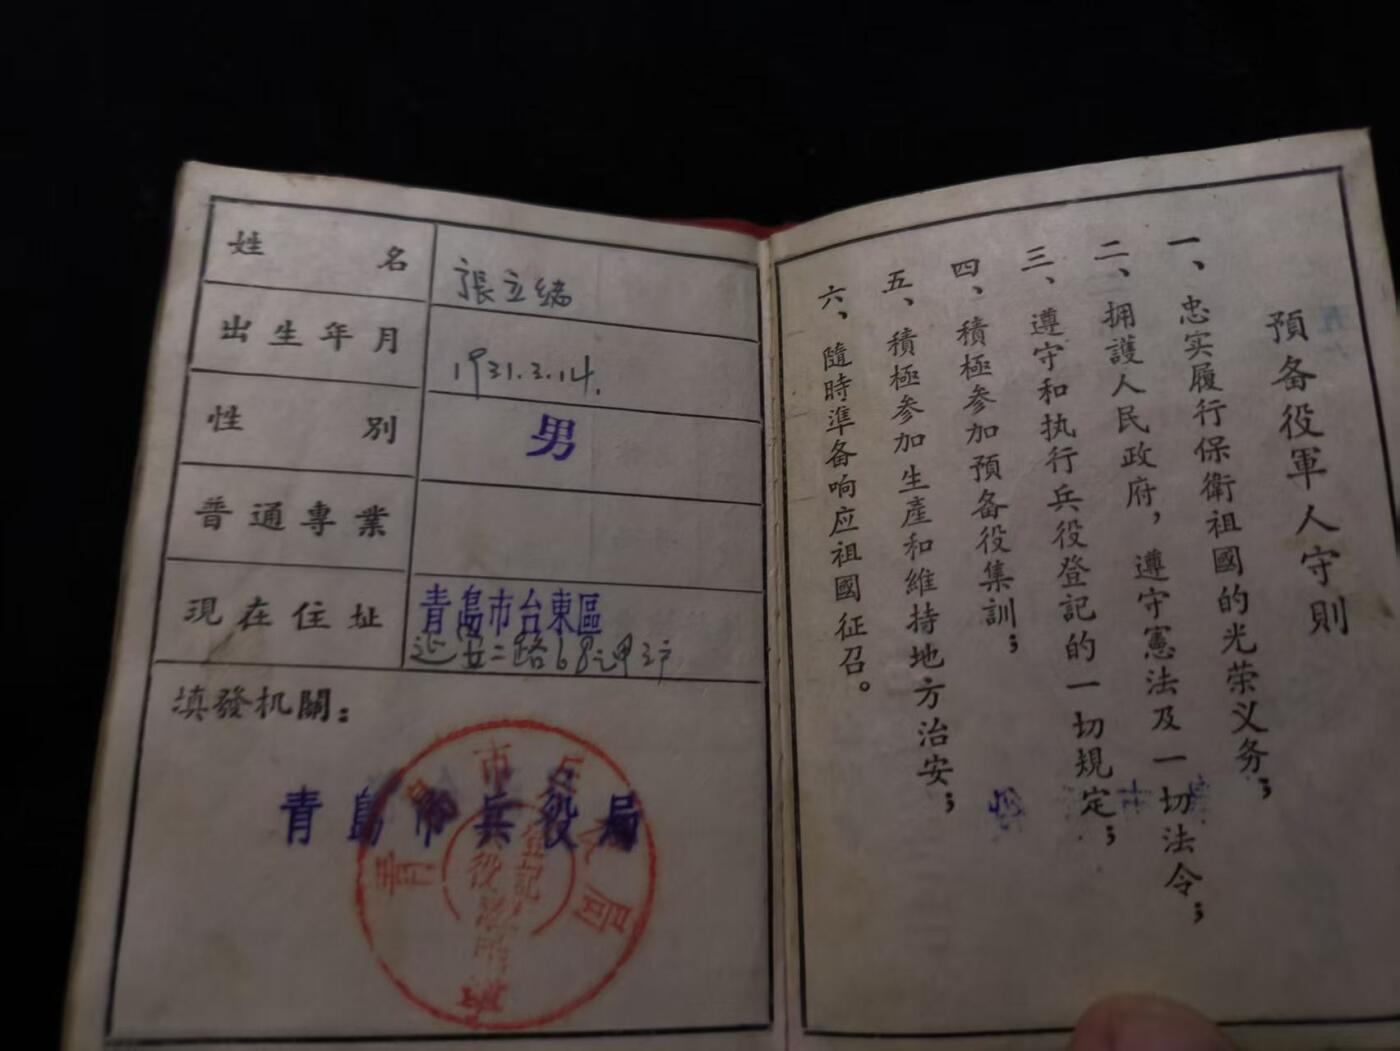 姓名
張立
出生年月
1931.3.14.
性別
男
普通專業
現在住址
青島市台東區
延安二路68号甲3户
填發机關：
青島市兵役局
預备役軍人守則
一、忠实履行保衛祖國的光荣义务；
二、拥護人民政府，遵守憲法及一切法令；
三、遵守和执行兵役登記的一切規定；
四、積極参加預备役集訓；
五、積極参加生產和維持地方治安；
六、隨時準备响应祖國征召。